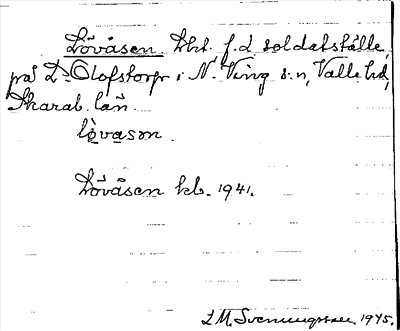 Lövåsen tbt. f.d. soldatställe,
på D:o Olofstorp i N. Ving s:n, Valle hd,
Skarab. län.
lòvasən.
Lövåsen kb. 1941.
L M. Svenungsson 1945.